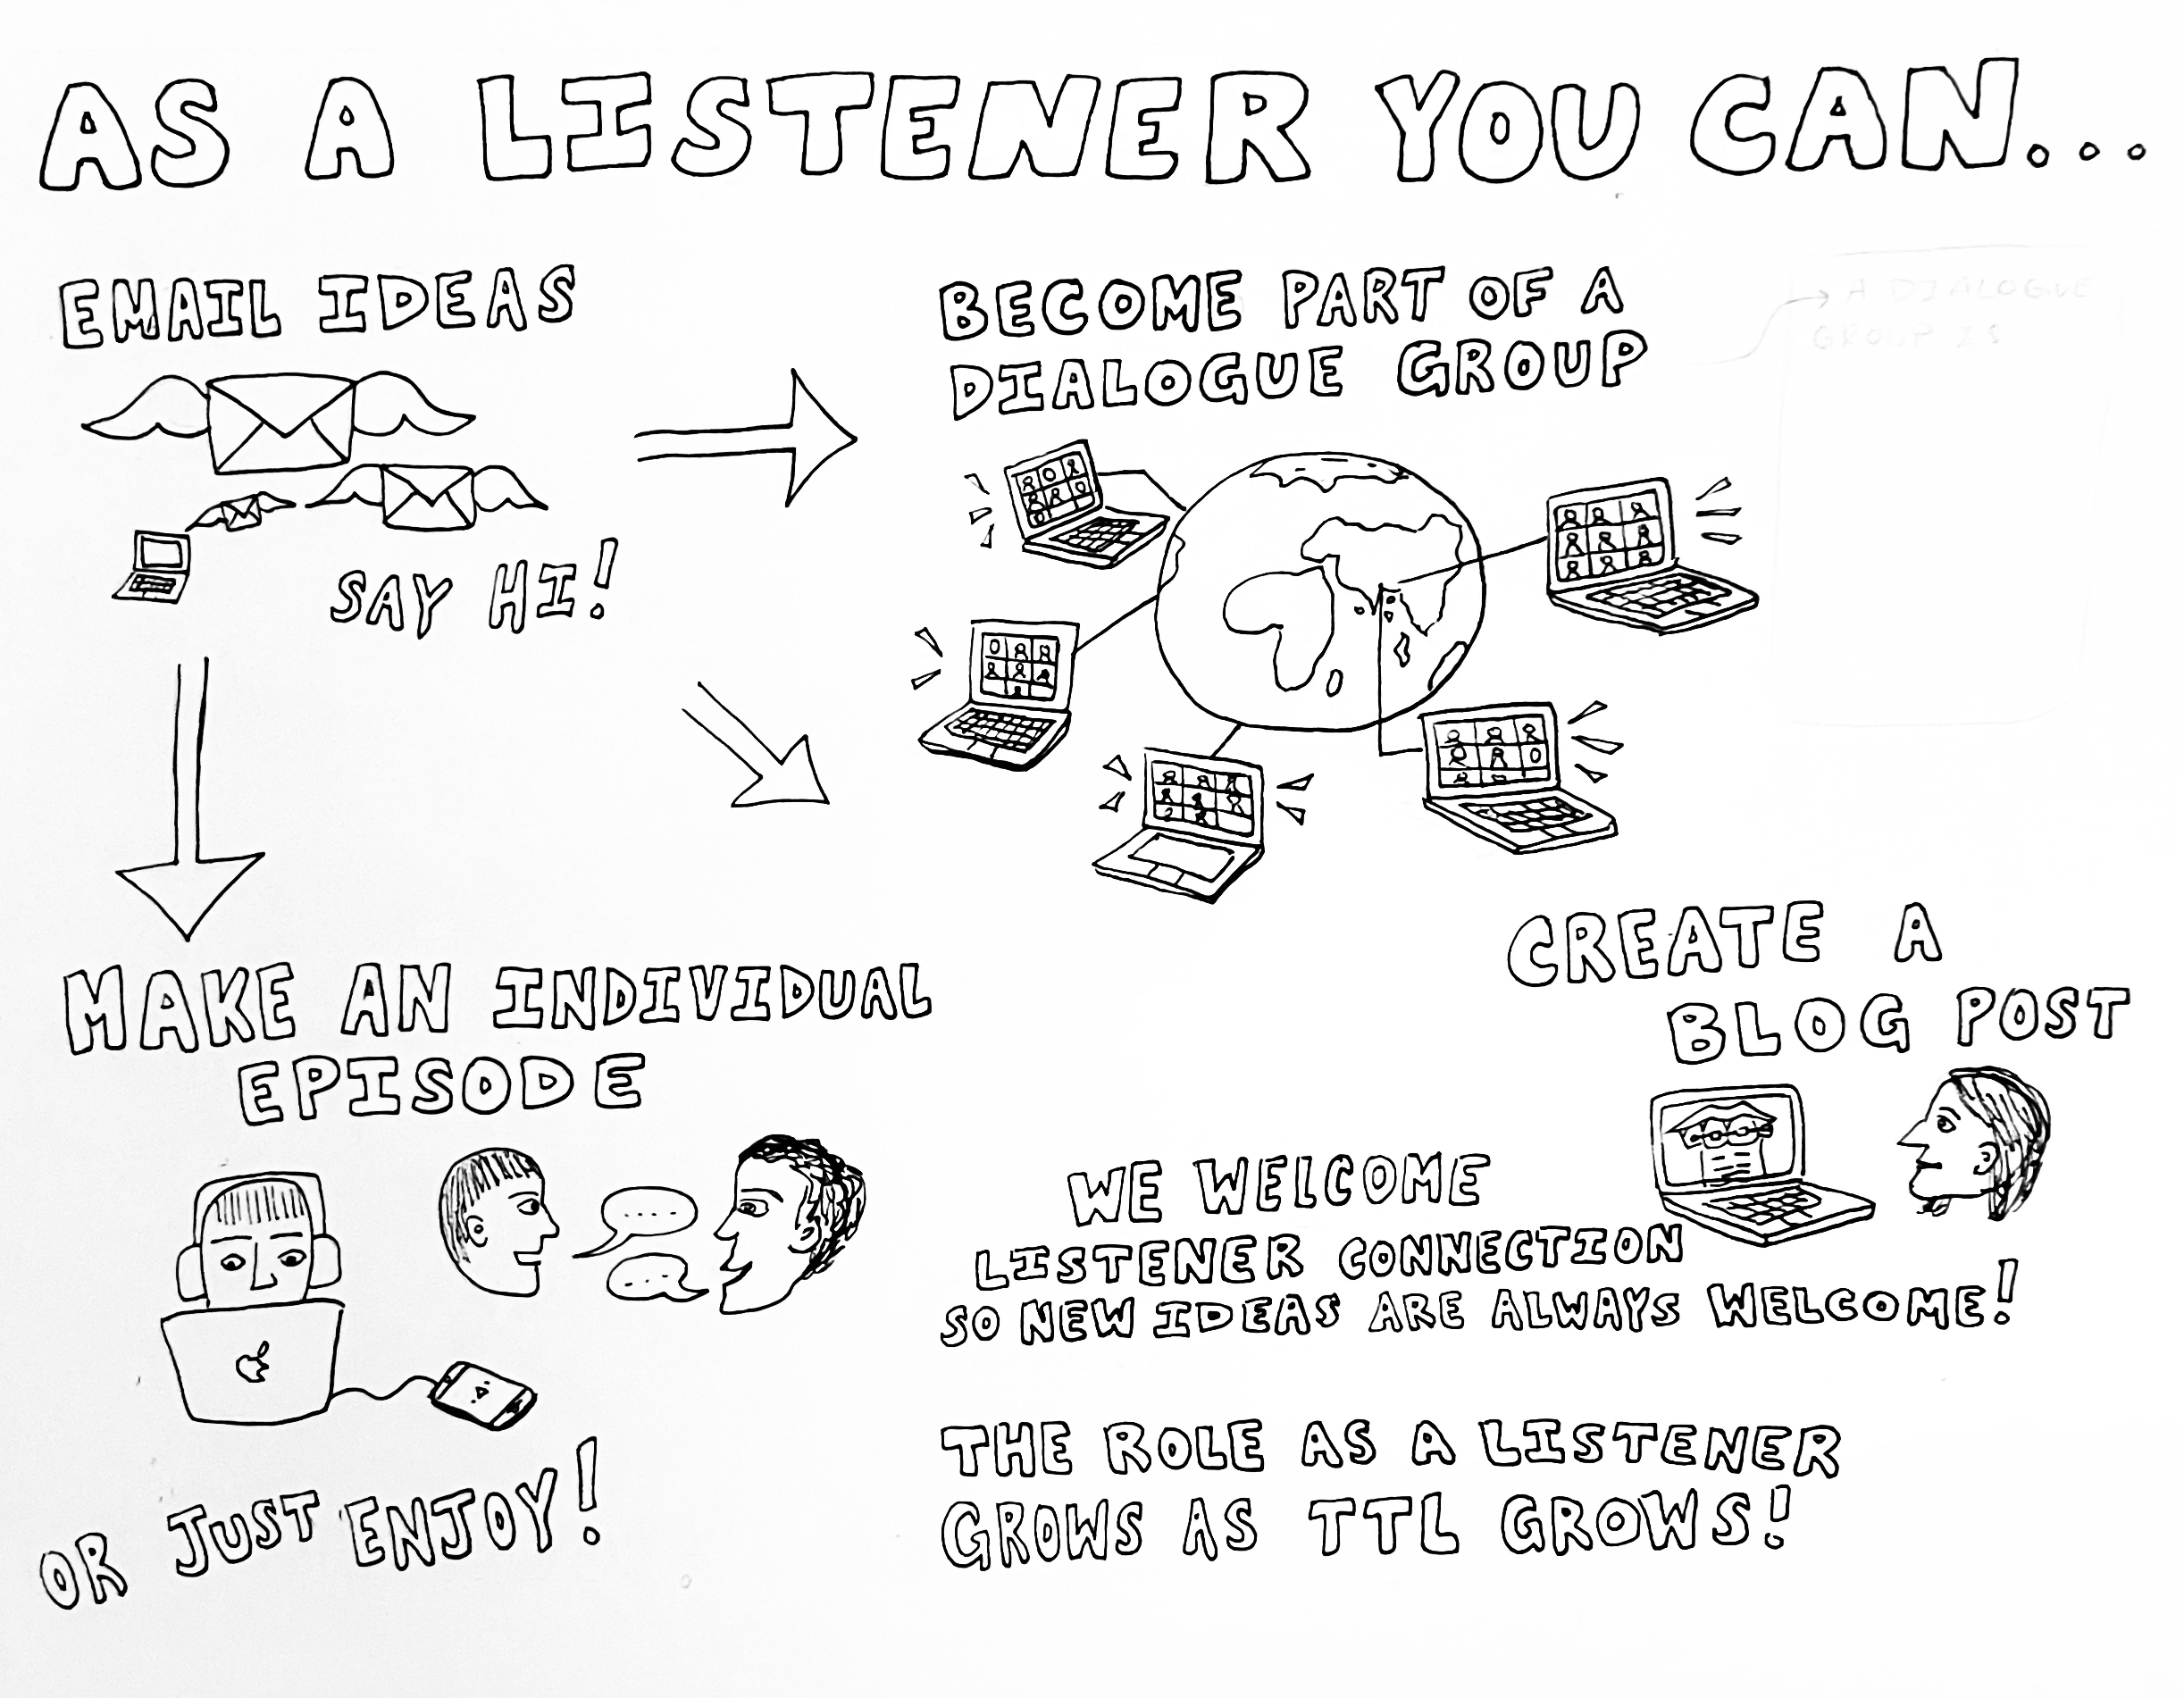 AS A LISTENER YOU CAN...
EMAIL IDEAS
SAY HI!
BECOME PART OF A
DIALOGUE GROUP
A DIALOGUE
GROUP IS
MAKE AN INDIVIDUAL
EPISODE
CREATE A
BLOG POST
WE WELCOME
LISTENER CONNECTION
SO NEW IDEAS ARE ALWAYS WELCOME!
OR JUST ENJOY!
THE ROLE AS A LISTENER
GROWS AS TTL GROWS!